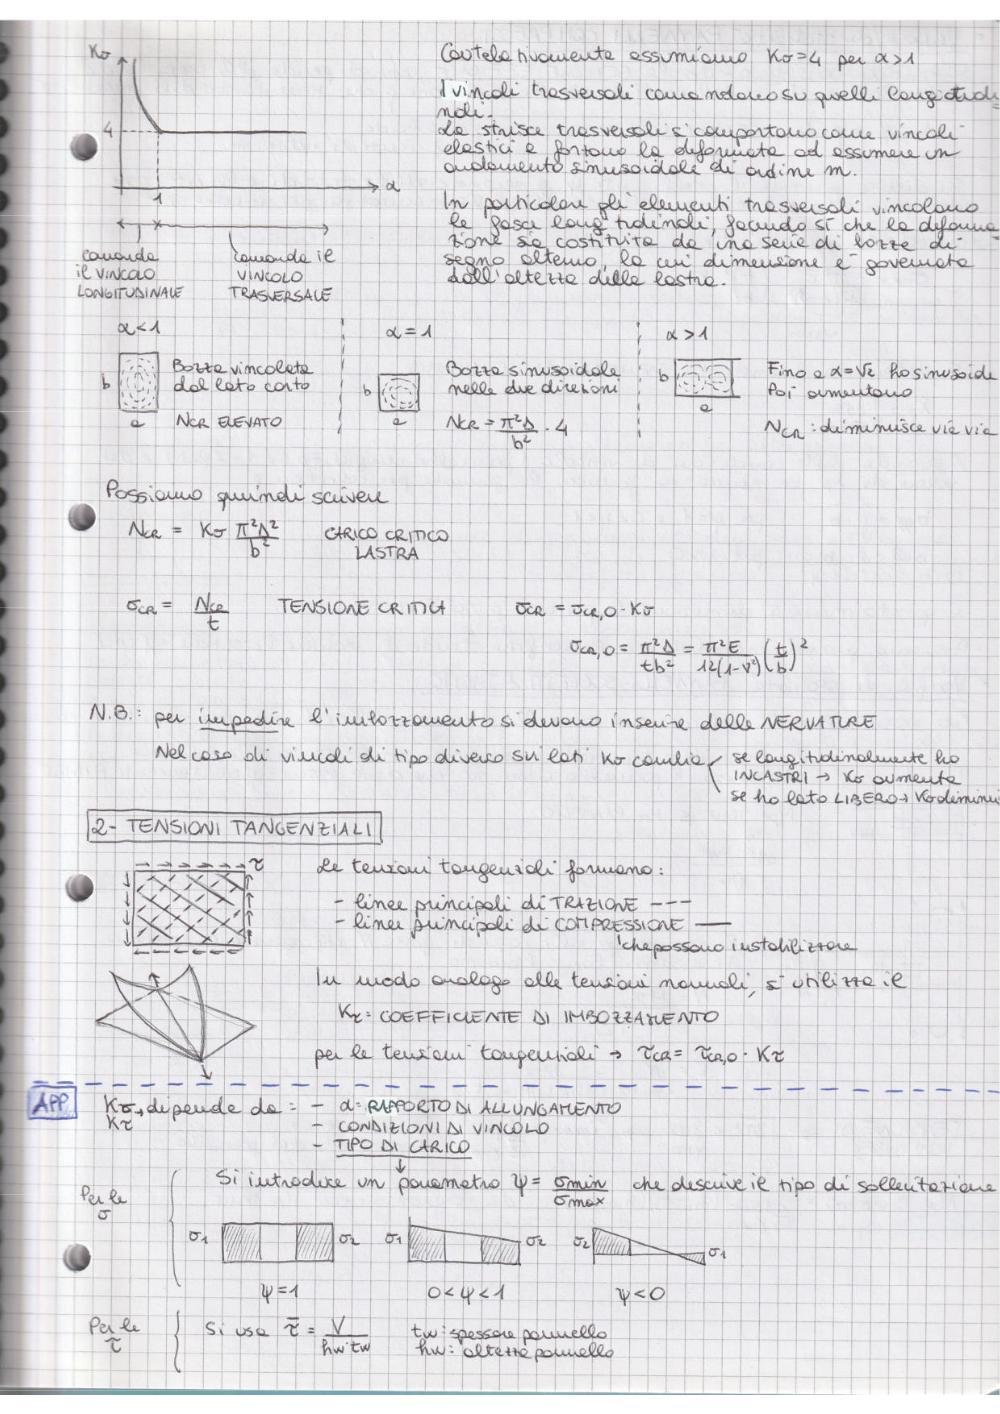 Kσ
4
1
α
comanda
il VINCOLO
LONGITUDINALE
comanda il
VINCOLO
TRASVERSALE
Cautelativamente assumiamo Kσ=4 per α>1
I vincoli trasversali comandano su quelli longitudi
nali.
Le strisce trasversali si comportano come vincoli
elastici e portano la deformata ad assumere un
andamento sinusoidale di ordine m.
In particolare gli elementi trasversali vincolano
le fasce longitudinali, facendo sì che la deforma
zione sia costituita da una serie di bozze di
segno alterno, la cui dimensione è governata
dall'altezza della lastra.
α<1
b
a
Bozza vincolata
dal lato corto
NCR ELEVATO
α=1
b
a
Bozza sinusoidale
nelle due direzioni
NCR = π²Δ/b² · 4
α>1
b
a
Fino a α=√2 ho sinusoide
Poi aumentano
NCR: diminuisce via via
Possiamo quindi scrivere
NCR = Kσ π²Δ²/b² CARICO CRITICO
LASTRA
σCR = NCR/t TENSIONE CRITICA σCR = σCR,0 · Kσ
σCR,0 = π²Δ/tb² = π²E/12(1-ν²) (t/b)²
N.B.: per impedire l'imbozzamento si devono inserire delle NERVATURE
Nel caso di vincoli di tipo diverso sui lati Kσ cambia
se longitudinalmente ho
INCASTRI → Kσ aumenta
se ho lato LIBERO → Kσ diminui
2- TENSIONI TANGENZIALI
τ
Le tensioni tangenziali formano:
- linee principali di TRAZIONE ---
- linee principali di COMPRESSIONE —
che possono instabilizzare
In modo analogo alle tensioni normali, si utilizza il
Kτ = COEFFICIENTE DI IMBOZZAMENTO
per le tensioni tangenziali → τCR = τCR,0 · Kτ
APP
Kσ, dipende da: - α: RAPPORTO DI ALLUNGAMENTO
Kτ
- CONDIZIONI DI VINCOLO
- TIPO DI CARICO
↓
Per le
σ
Si introduce un parametro ψ = σmin/σmax che descrive il tipo di sollecitazione
σ1 σ2 σ1 σ2 σ2 σ1
ψ=1 0<ψ<1 ψ<0
Per le
τ
Si usa τ̄ = V/hw·tw
tw: spessore pannello
hw: altezza pannello